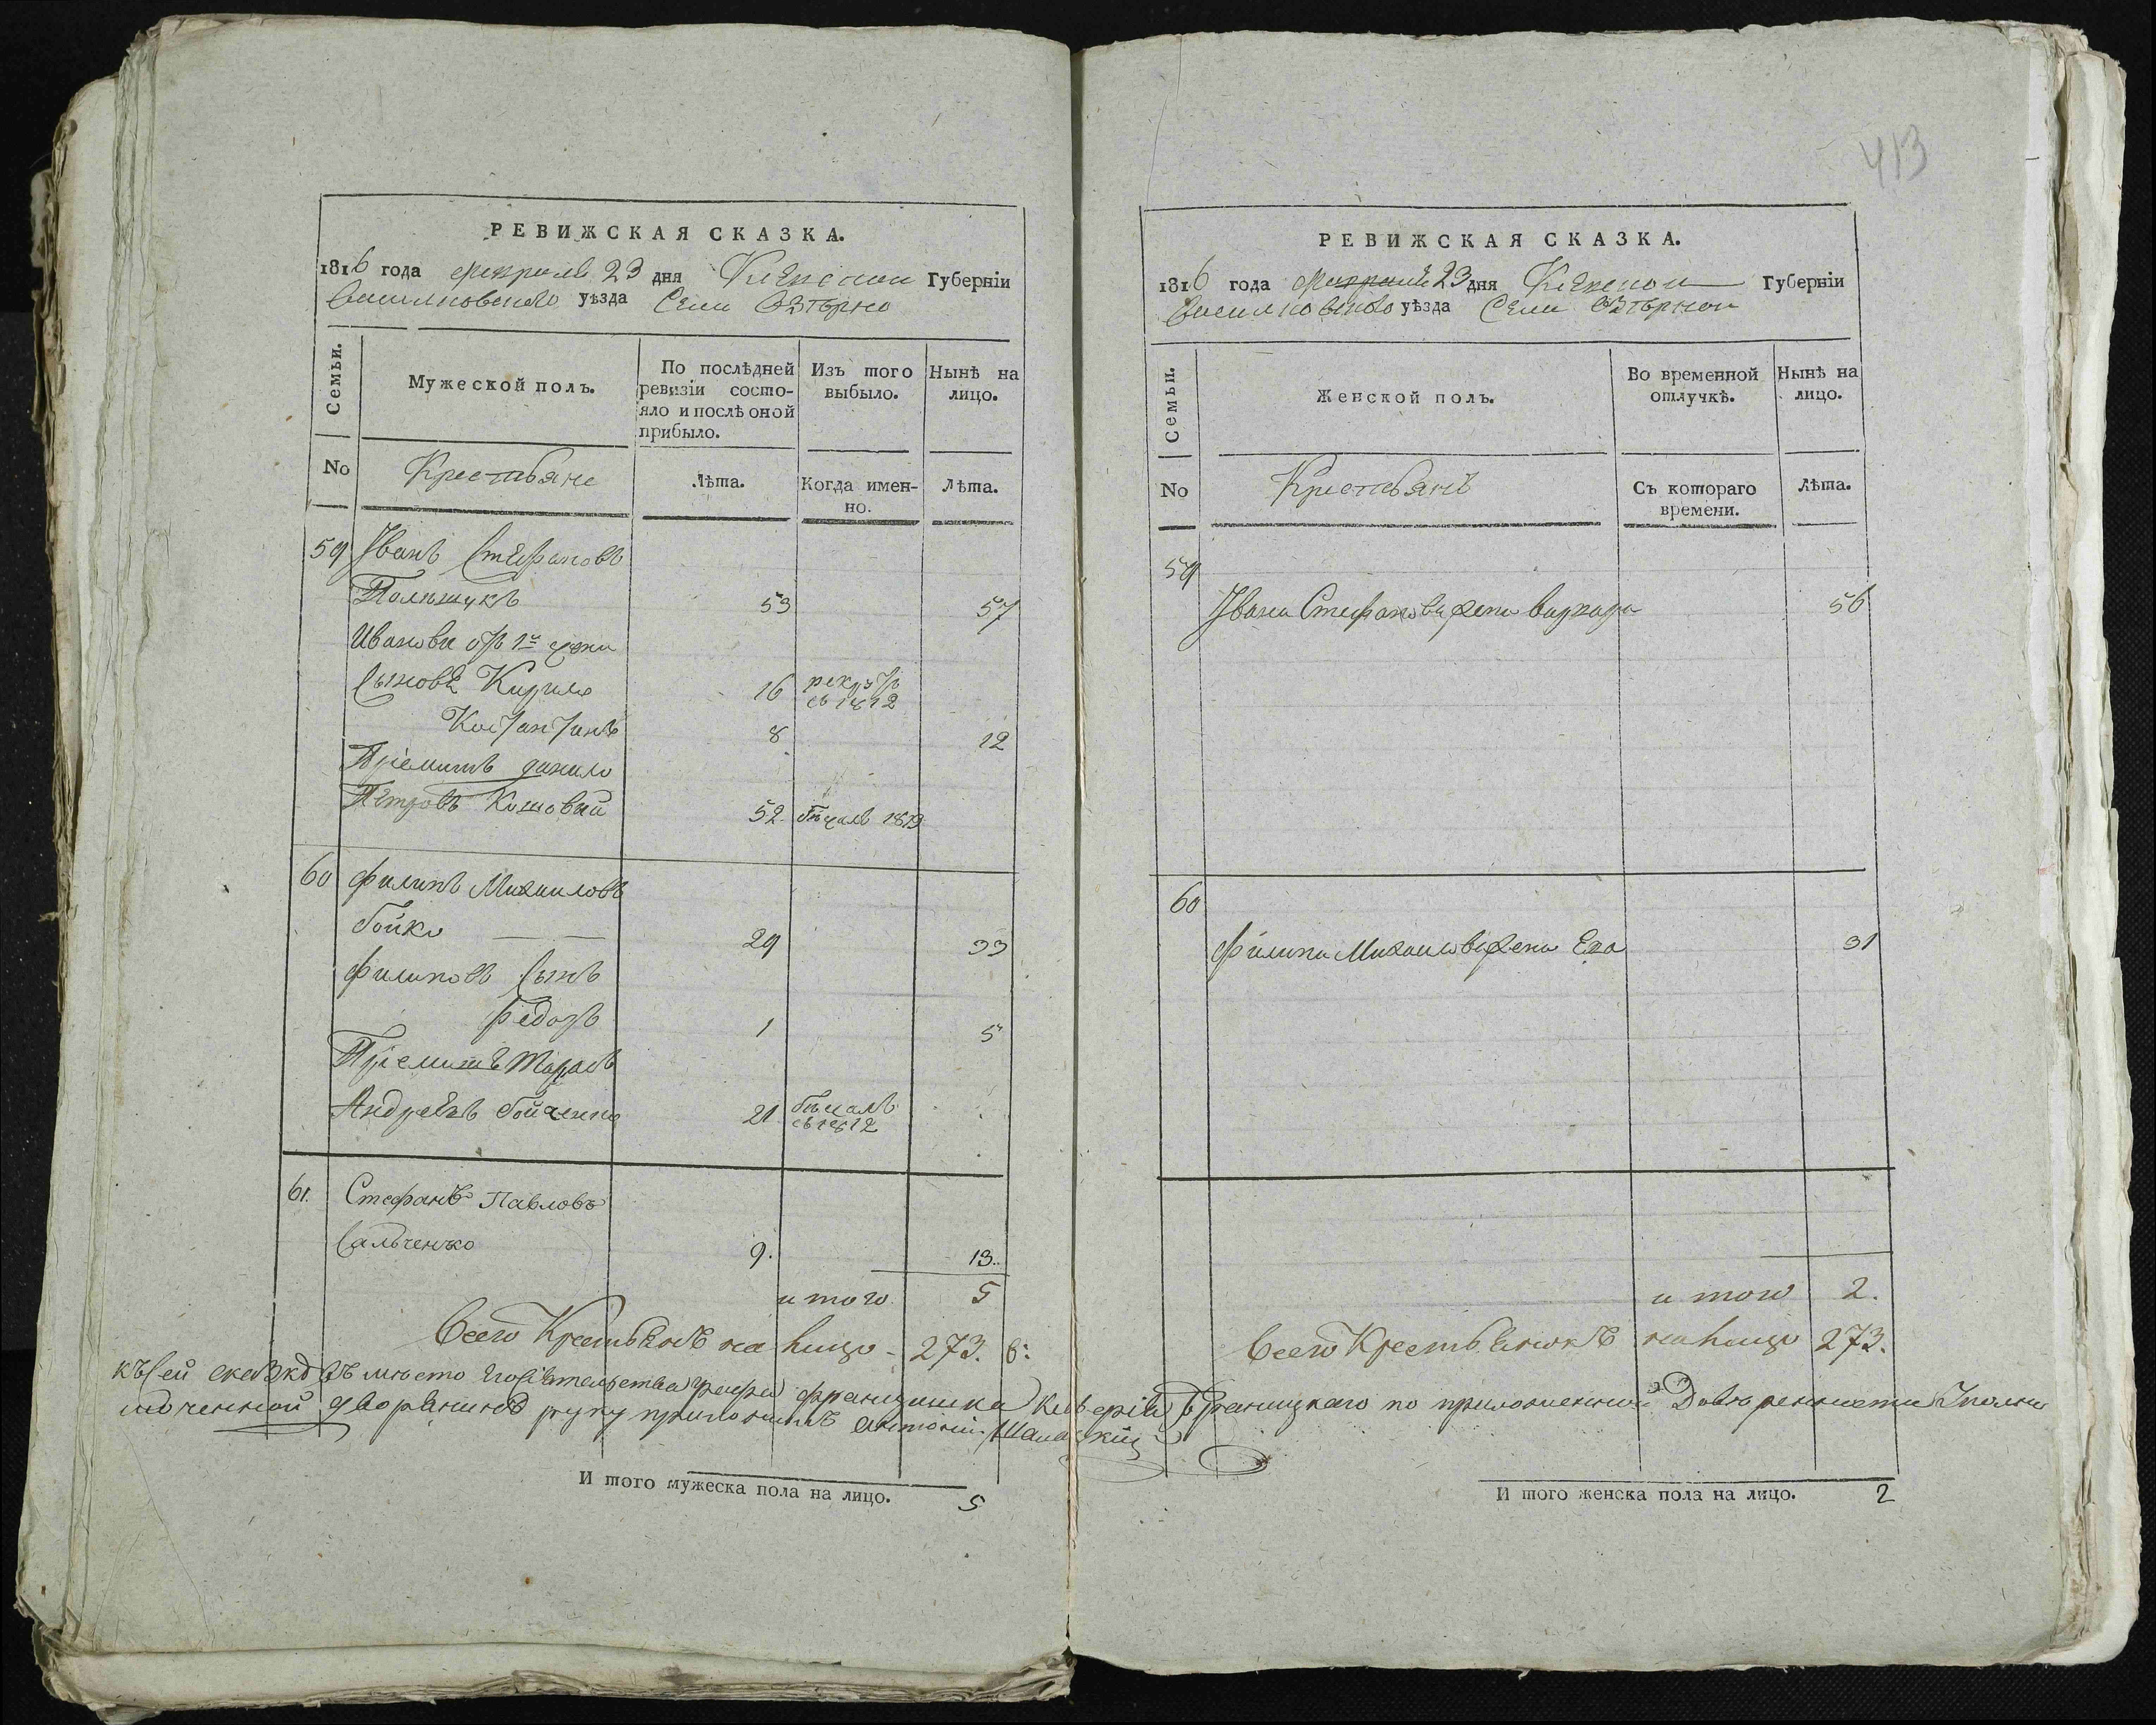 РЕВИЖСКАЯ СКАЗКА.
1816 года февраля 23 дня Кіевской Губерніи
Васильковского уѣзда Села Озѣрно
Семьи.
Мужеской полъ.
По послѣдней ревизіи состояло и послѣ оной прибыло.
Изъ того выбыло.
Нынѣ на лицо.
No
Крестьяне
Лѣта.
Когда именно.
Лѣта.
59 Іванъ Стефановъ
Полѣщукъ 53 57
Иванова отъ 1й жены
Сыновѣ Кирило 16 рекрутъ въ 1812
Костантинъ 8 12
Пріемишъ данило
Петровъ Кошовий 52 бѣжалъ 1813
60 филипъ Михаиловъ
бойко 29 33
филиповъ Сынъ
Федоръ 1 5
Пріемишъ Тарасъ
Андреевъ бойченко 21 бѣжалъ въ 1812
61. Стефанъ Павловъ
Сальченко 9. 13.
итого 5
Всего Крестьянъ на лицо - 273.
къ Сей сказкѣ въ мѣсто Его Сіятельства графа францишка Ксаверія Браницкаго по приложенной Довѣренности Уполно
моченной дворянинъ руку приложилъ Антоній
И того мужеска пола на лицо. 5
413
РЕВИЖСКАЯ СКАЗКА.
1816 года февраля 23 дня Кіевской Губерніи
Васильковского уѣзда Села Озѣрной
Семьи.
Женской полъ.
Во временной отлучкѣ.
Нынѣ на лицо.
No
Крестьянѣ
Съ котораго времени.
Лѣта.
59
Івана Стефанова жена варвара 56
60
Филипа Михаилова жена Ева 31
итого 2.
Всего Крестьянокъ на лицо 273.
И того женска пола на лицо. 2